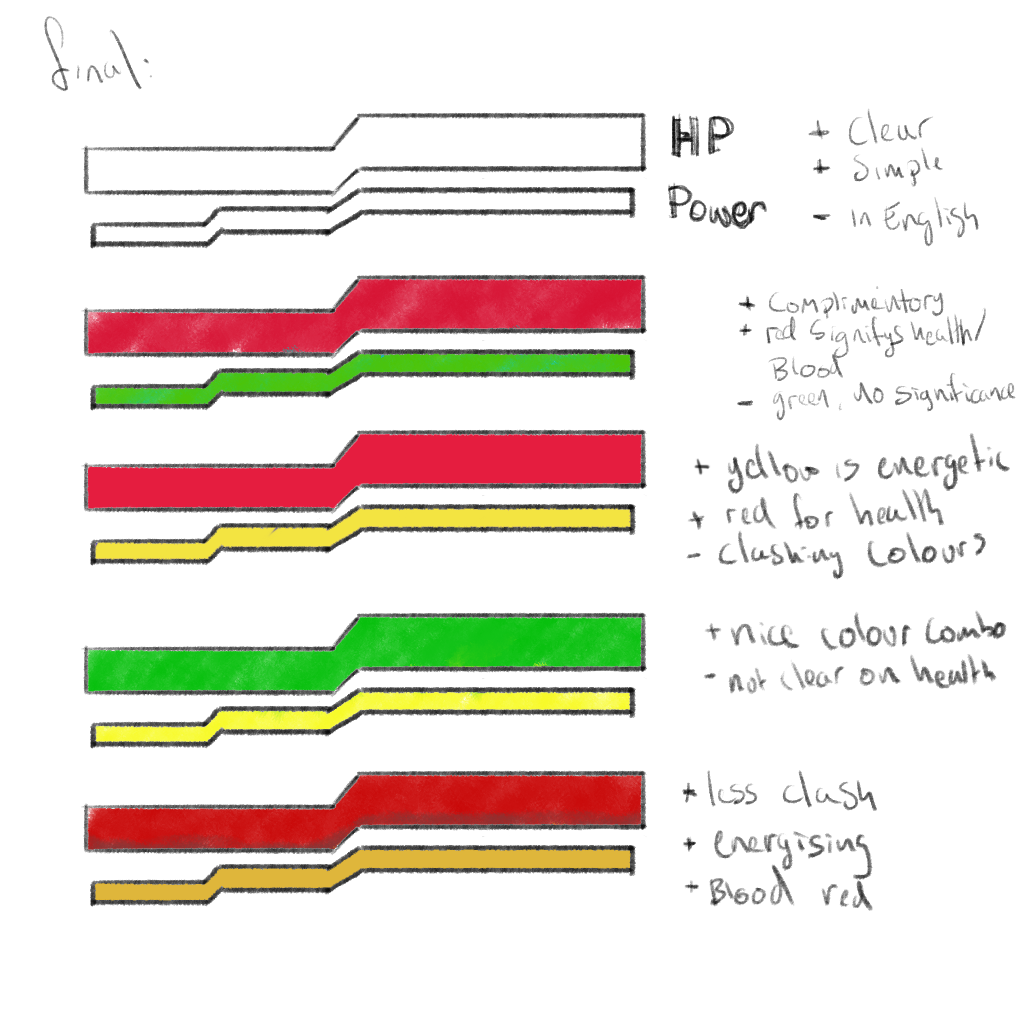 final:
HP
Power
+ Clear
+ Simple
- in English
+ Complimentory
+ red Signifys health/
Blood
- green, no significance
+ yellow is energetic
+ red for health
- clashing colours
+ nice colour combo
- not clear on health
+ less clash
+ energising
+ Blood red